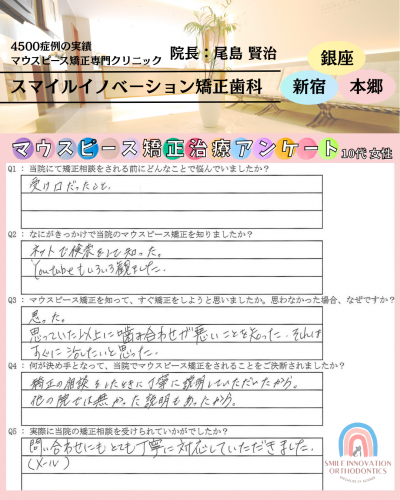 4500症例の実績
マウスピース矯正専門クリニック
院長：尾島 賢治
スマイルイノベーション矯正歯科
銀座
新宿
本郷
マウスピース矯正治療アンケート 10代 女性
Q1：当院にて矯正相談をされる前にどんなことで悩んでいましたか？
受け口だったこと。
Q2：なにがきっかけで当院のマウスピース矯正を知りましたか？
ネットで検索をして知った。
Youtubeもいろいろ観ました。
Q3：マウスピース矯正を知って、すぐ矯正をしようと思いましたか。思わなかった場合、なぜですか？
思った。
思っていた以上に噛み合わせが悪いことを知った。それは
すぐに治したいと思った。
Q4：何が決め手となって、当院でマウスピース矯正をされることをご決断されましたか？
矯正の相談をしたときに丁寧に説明していただいたから。
他の院では無かった説明もあったから。
Q5：実際に当院の矯正相談を受けられていかがでしたか？
問い合わせにもとても丁寧に対応していただきました。
(メール)
SMILE INNOVATION
ORTHODONTICS